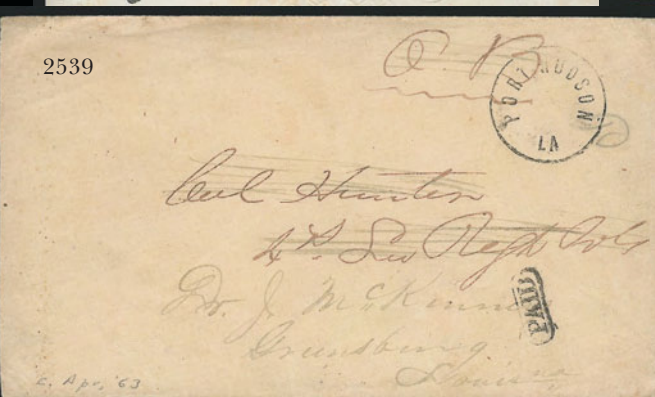 2539
O. B.
PORT HUDSON
LA
Col Hunter
4th Lou Regt Vols
PAID
Dr. J. McKinney
Greensburg
Louisiana
c. Apr. '63